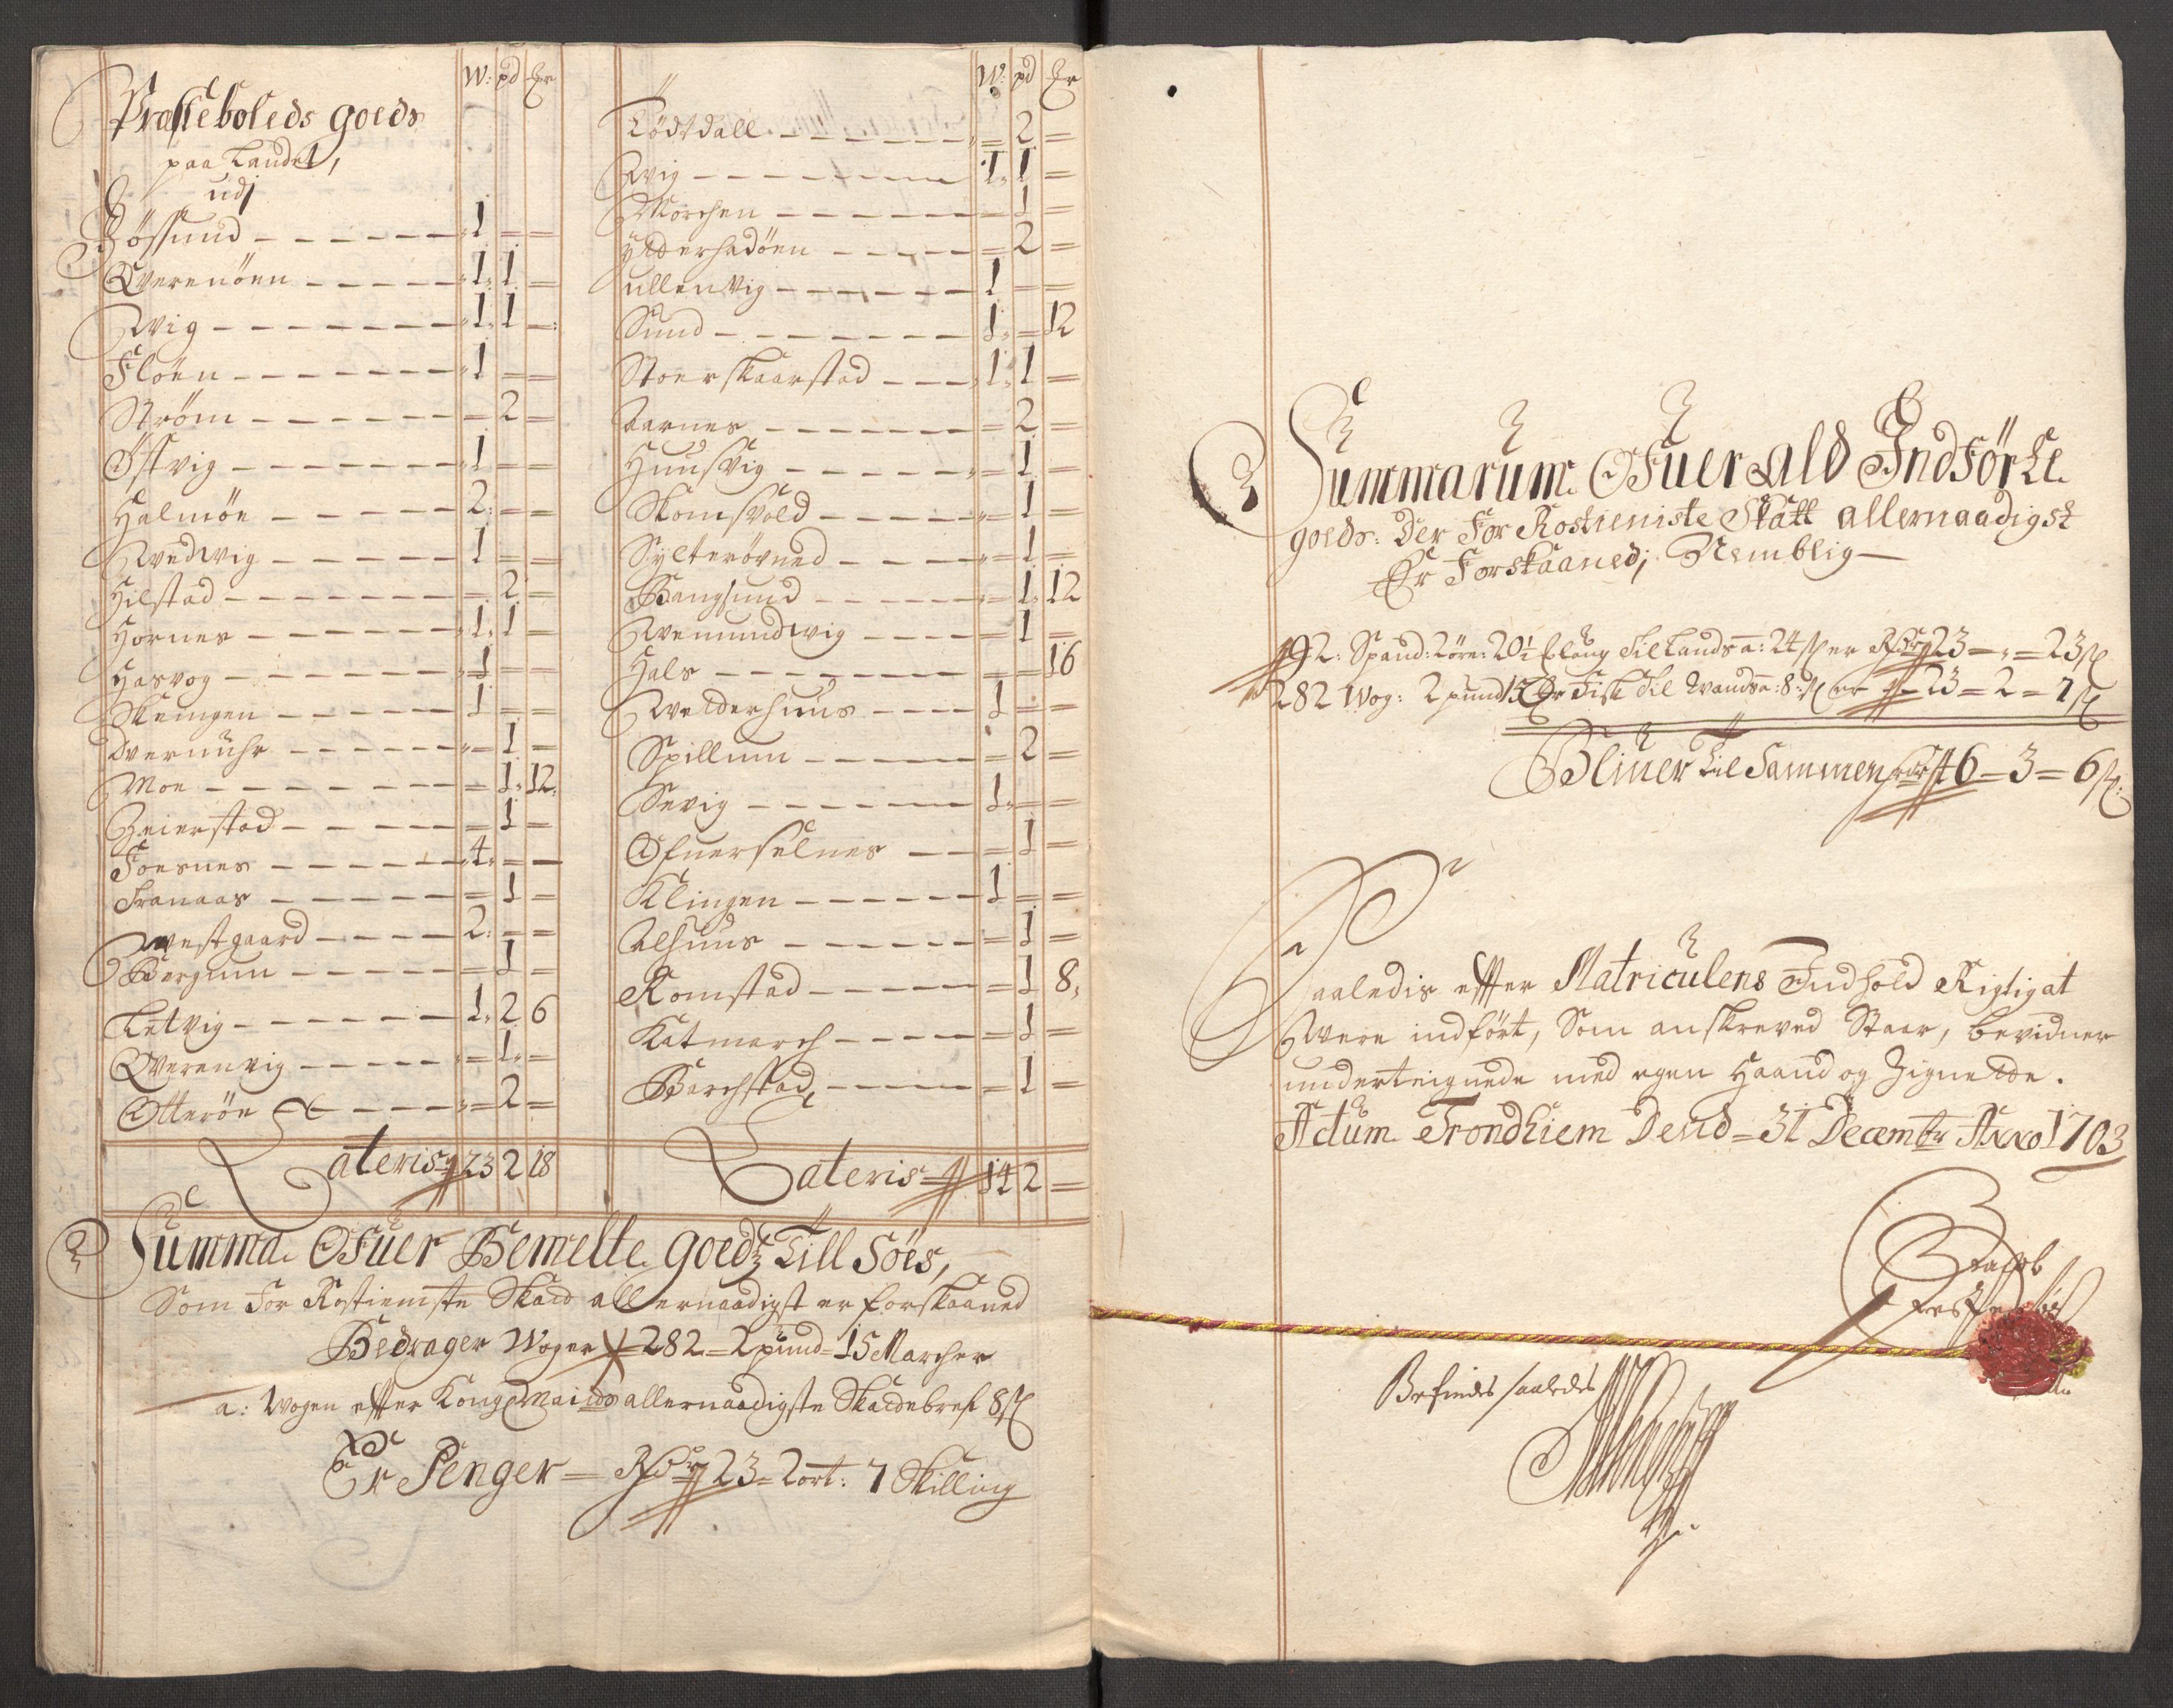 W: pd Er
Præsteboleds goeds
paa Landet,
udj
Bössund - - - - - 1 = =
Qverenöen - - - - - 1 1 =
Wig - - - - - - 1 1 =
Floen - - - - - - 1 = =
Ström - - - - - = 2 =
Östvig - - - - - 1 = =
Halmöe - - - - - 2 = =
Wedwig - - - - - 1 = =
Hilstad - - - - - = 2 =
Hornes - - - - - 1 1 =
Hasvog - - - - - 1 = =
Skeingen - - - - - 1 = =
Overnuhr - - - - - = 1 =
Moe - - - - - = 1 12
Zeierstad - - - - = 1 =
Foesnes - - - - - 4 = =
Franaas - - - - - = 1 =
westgaard - - - - 2 = =
Bergum - - - - - = 1 =
Letvig - - - - - 1 2 6
Qverenvig - - - - = 1 =
Otteröe - - - - = 2 =
Lateris 23 2 18
W: pd Er
Lödtdall - - - - - = 2 =
Wig - - - - - - 1 1 =
Morchen - - - - - = 1 =
ytterhadöen - - - - = 2 =
ullenvig - - - - - 1 = =
Sund - - - - - 1 = 12
Stoerskaarstad - - - 1 1 =
Aarnes - - - - - = 2 =
Huusvig - - - - - = 1 =
Komsvold - - - - = 1 =
Sylterövned - - - - = 1 =
Bangsund - - - - = 1 12
Wemundwig - - - - = 1 =
Hals - - - - - = = 16
Welderhuus - - - - 1 = =
Spillum - - - - - = 2 =
Sevig - - - - - 1 = =
Ofuerselnes - - = 1 =
Klingen - - - - - 1 = =
Alhuus - - - - - = 1 =
Romstad - - - - = 1 8
Katmarch - - - - = 1 =
Barchstad - - - - = 1 =
Lateris 14 2 =
Summa Ofuer Bemelte goedz Till Söes,
Som For Rostieniste Skatt allernaadigst er forskaaned
Bedrager Woger 282 = 2 pund = 15 Marcher
a: Wogen efter Kong Maits allernaadigste Skattebref 8 s
Er Penger = Rdr 23 = 2 ort: 7 Skilling
Summarum Ofuer Ald Indförte
goeds: Der For Rostieniste Skatt allernaadigst
Er Forskaaned; Nemblig
92: Spand: 2 öre: 20½ Ellaug Til Lands a: 24 s er Rdr 23 = = 23 s
282 Wog: 2 pund 15 Er Fisk Til Wands a: 8 s er 23 = 2 = 7 s
Bliuer Til Sammen Rdr 46 = 3 = 6 s
Saaledis efter Matriculens Indhold Rigtigat
Were indfört, Som anskreved Staar, bevidner
underteignede med egen Haand og Zignette.
Actum Trondhiem Dend = 31 Decembr Anno 1703
Jacob
Befindes saaledes